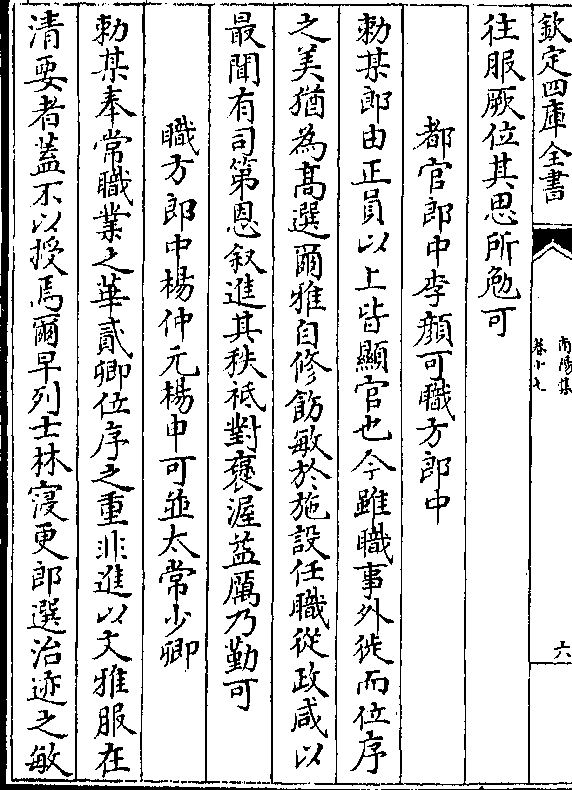 欽定四庫全書
南陽集
卷十七
六
往服厥位其思所勉可
都官郎中李顔可職方郎中
勅某郎由正員以上皆顯官也今雖職事外徙而位序
之美猶為髙選爾雅自修飭敏於施設任職從政咸以
最聞有司第恩叙進其秩祗對褒渥益厲乃勤可
職方郎中楊仲元楊申可並太常少卿
勅某奉常職業之華貳卿位序之重非進以文雅服在
清要者蓋不以授焉爾早列士林寖更郎選治迹之敏